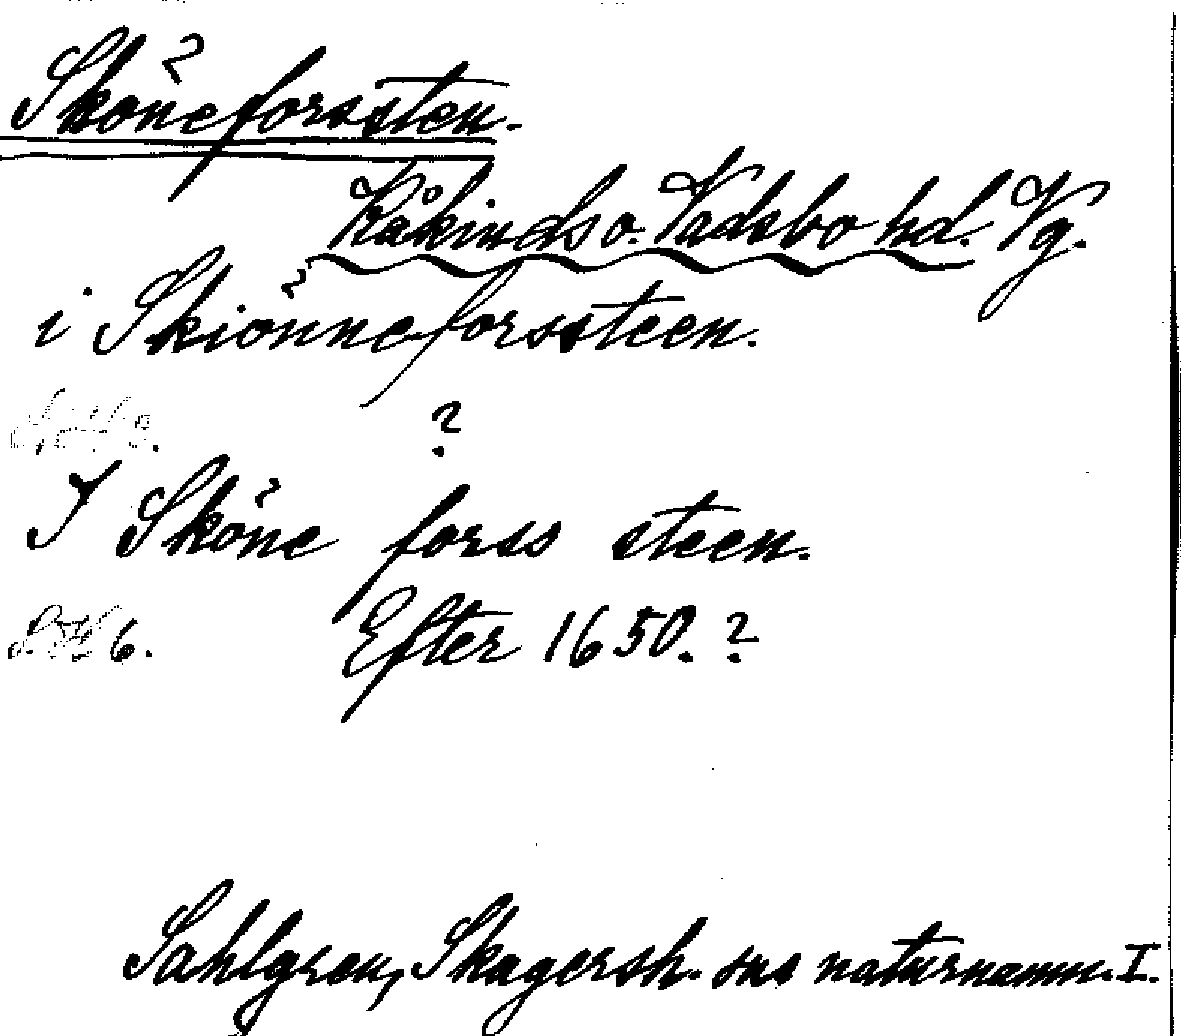 Sköneforssten.
Kåkinds o. Vadsbo hd. Vg.
i Skiönneforssteen.
?
I Sköne forss steen.
6. Efter 1650. ?
Sahlgren, Skagersh. sns naturnamn. I.